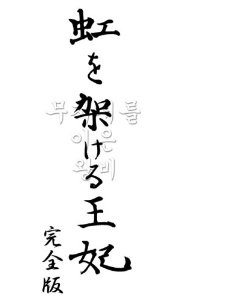 虹を架ける王妃
完全版
무지개를
이은
왕비